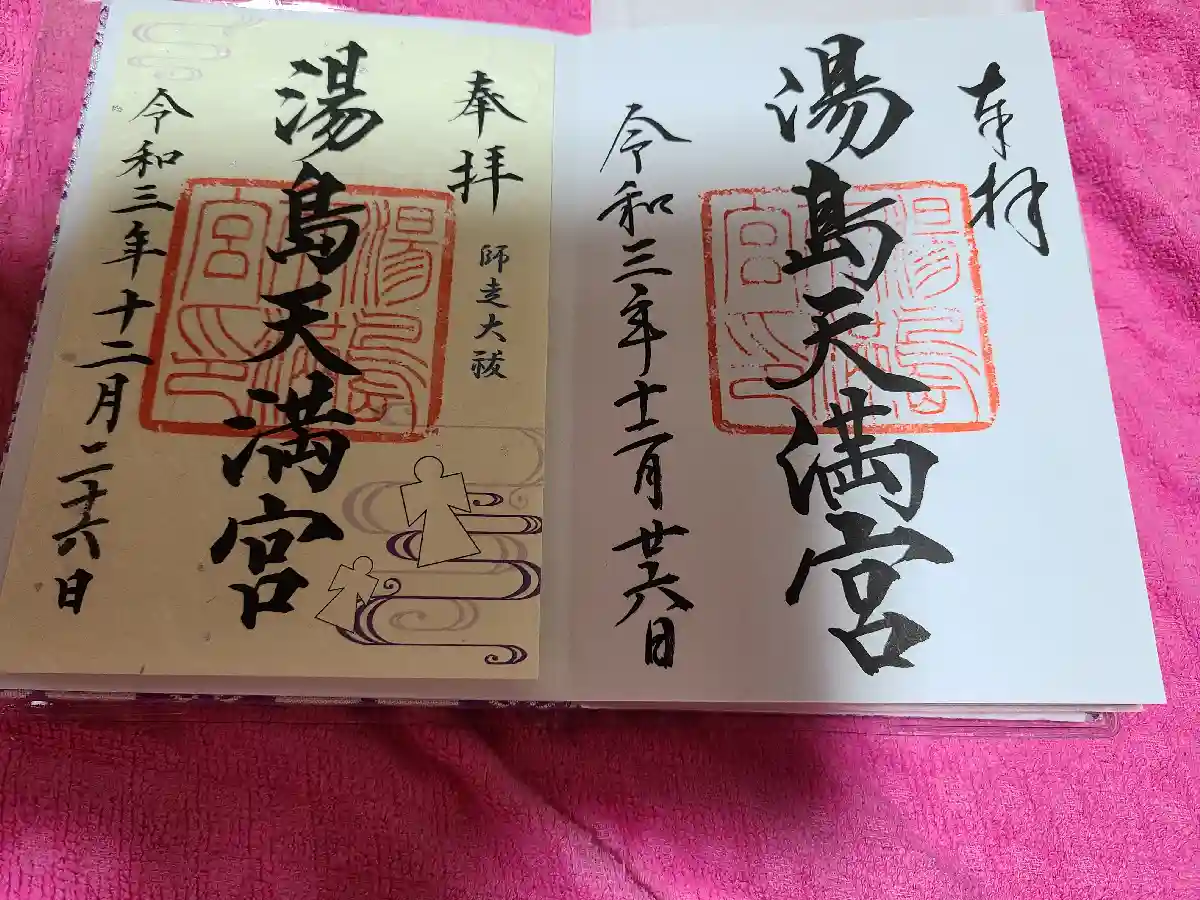 奉拝
湯島天満宮
令和三年十二月廿六日
湯島天満宮印
奉拝 師走大祓
湯島天満宮
令和三年十二月二十六日
湯島天満宮印